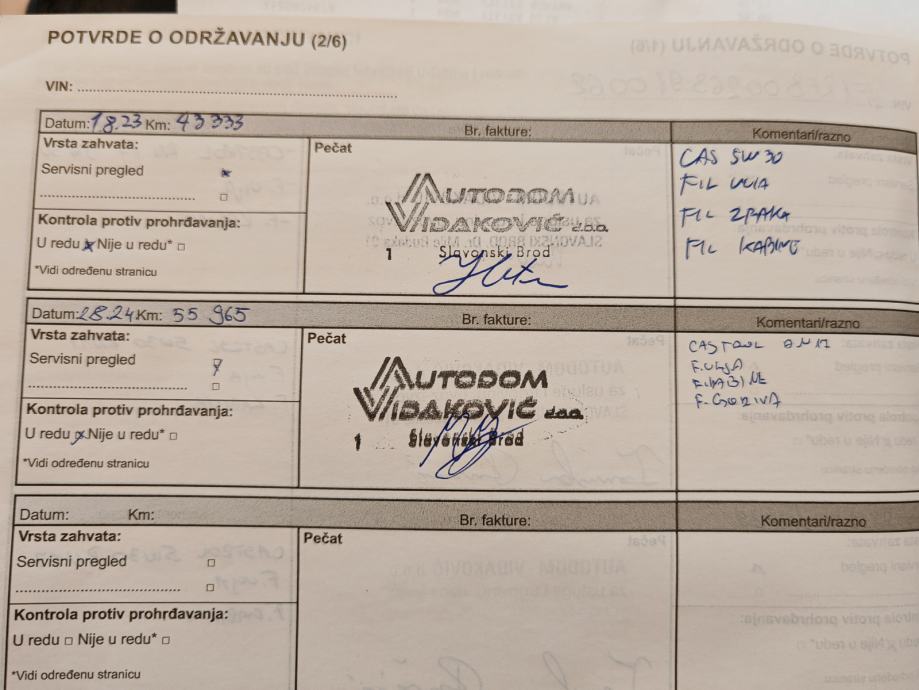 POTVRDE O ODRŽAVANJU (2/6)
VIN:
Datum: 1.8.23 Km: 43 333
Br. fakture:
Komentari/razno
Vrsta zahvata:
Servisni pregled
Kontrola protiv prohrđavanja:
U redu Nije u redu*
*Vidi određenu stranicu
Pečat
AUTODOM
VIDAKOVIĆ d.o.o.
1 Slavonski Brod
CAS 5W30
FIL ULJA
FIL ZRAKA
FIL KABINE
Datum: 2.8.24 Km: 55 965
Br. fakture:
Komentari/razno
Vrsta zahvata:
Servisni pregled
Kontrola protiv prohrđavanja:
U redu Nije u redu*
*Vidi određenu stranicu
Pečat
AUTODOM
VIDAKOVIĆ d.o.o.
1 Slavonski Brod
CASTROL
F. ULJA
F. KABINE
F. GORIVA
Datum: Km:
Br. fakture:
Komentari/razno
Vrsta zahvata:
Servisni pregled
Kontrola protiv prohrđavanja:
U redu Nije u redu*
*Vidi određenu stranicu
Pečat